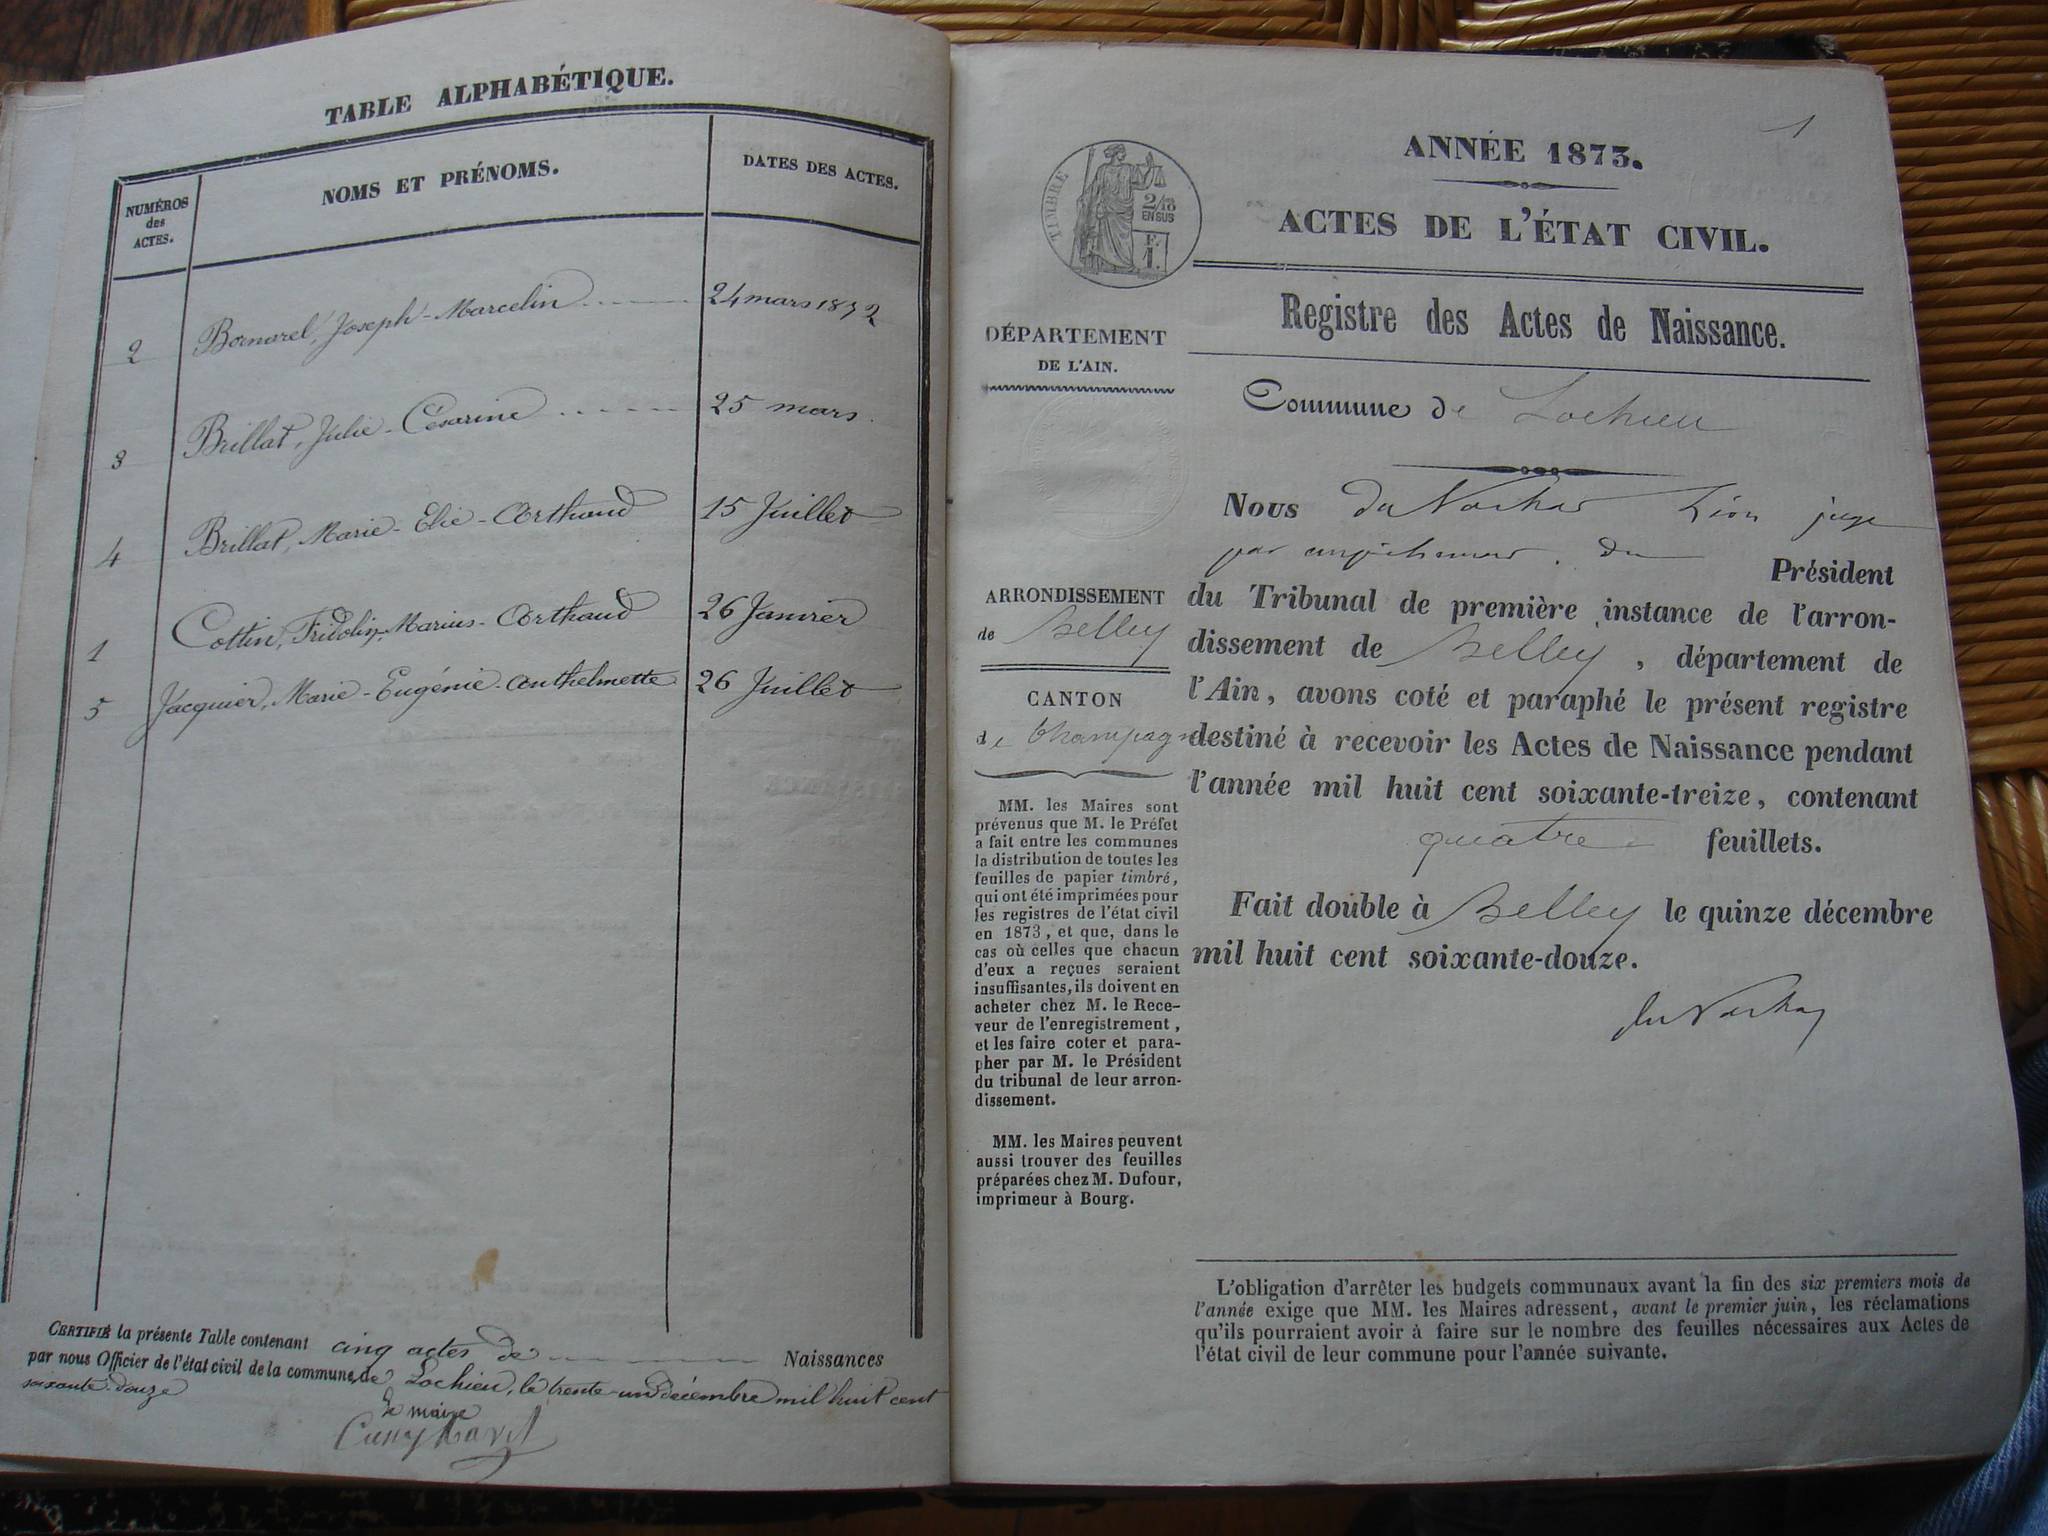 TABLE ALPHABÉTIQUE.
NUMÉROS
des
ACTES.
NOMS ET PRÉNOMS.
DATES DES ACTES.
2 Bornarel, Joseph-Marcelin 24 mars 1872
3 Brillat, Julie-Césarine 25 mars.
4 Brillat, Marie-Elie-Arthaud 15 Juillet
1 Cottin, Fridolin, Marius-Arthaud 26 Janvier
5 Jacquier, Marie-Eugénie-Anthelmette 26 Juillet
CERTIFIÉ la présente Table contenant cinq actes de Naissances
par nous Officier de l'état civil de la commune de Lochieu, le trente-un Décembre mil huit cent
soixante-douze
Le maire
1
ANNÉE 1873.
ACTES DE L'ÉTAT CIVIL.
TIMBRE
2/10
EN SUS
F.
1.
Registre des Actes de Naissance.
DÉPARTEMENT
DE L'AIN.
Commune de Lochieu
Nous juge
par empêchement du Président
du Tribunal de première instance de l'arron-
dissement de Belley, département de
l'Ain, avons coté et paraphé le présent registre
destiné à recevoir les Actes de Naissance pendant
l'année mil huit cent soixante-treize, contenant
quatre feuillets.
Fait double à Belley le quinze décembre
mil huit cent soixante-douze.
ARRONDISSEMENT
de Belley
CANTON
de Champagne
MM. les Maires sont
prévenus que M. le Préfet
a fait entre les communes
la distribution de toutes les
feuilles de papier timbré,
qui ont été imprimées pour
les registres de l'état civil
en 1873, et que, dans le
cas où celles que chacun
d'eux a reçues seraient
insuffisantes, ils doivent en
acheter chez M. le Rece-
veur de l'enregistrement,
et les faire coter et para-
pher par M. le Président
du tribunal de leur arron-
dissement.
MM. les Maires peuvent
aussi trouver des feuilles
préparées chez M. Dufour,
imprimeur à Bourg.
L'obligation d'arrêter les budgets communaux avant la fin des six premiers mois de
l'année exige que MM. les Maires adressent, avant le premier juin, les réclamations
qu'ils pourraient avoir à faire sur le nombre des feuilles nécessaires aux Actes de
l'état civil de leur commune pour l'année suivante.